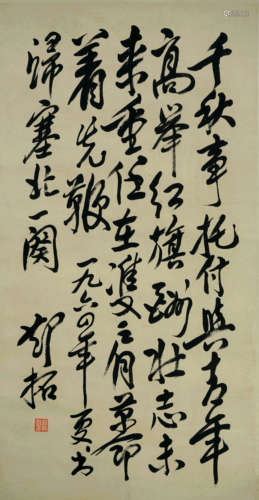 千秋事托付與青年
高举红旗酬壮志未
来重任在双肩革命
着先鞭 一九六四年夏书
歸塞北一阕 邓拓